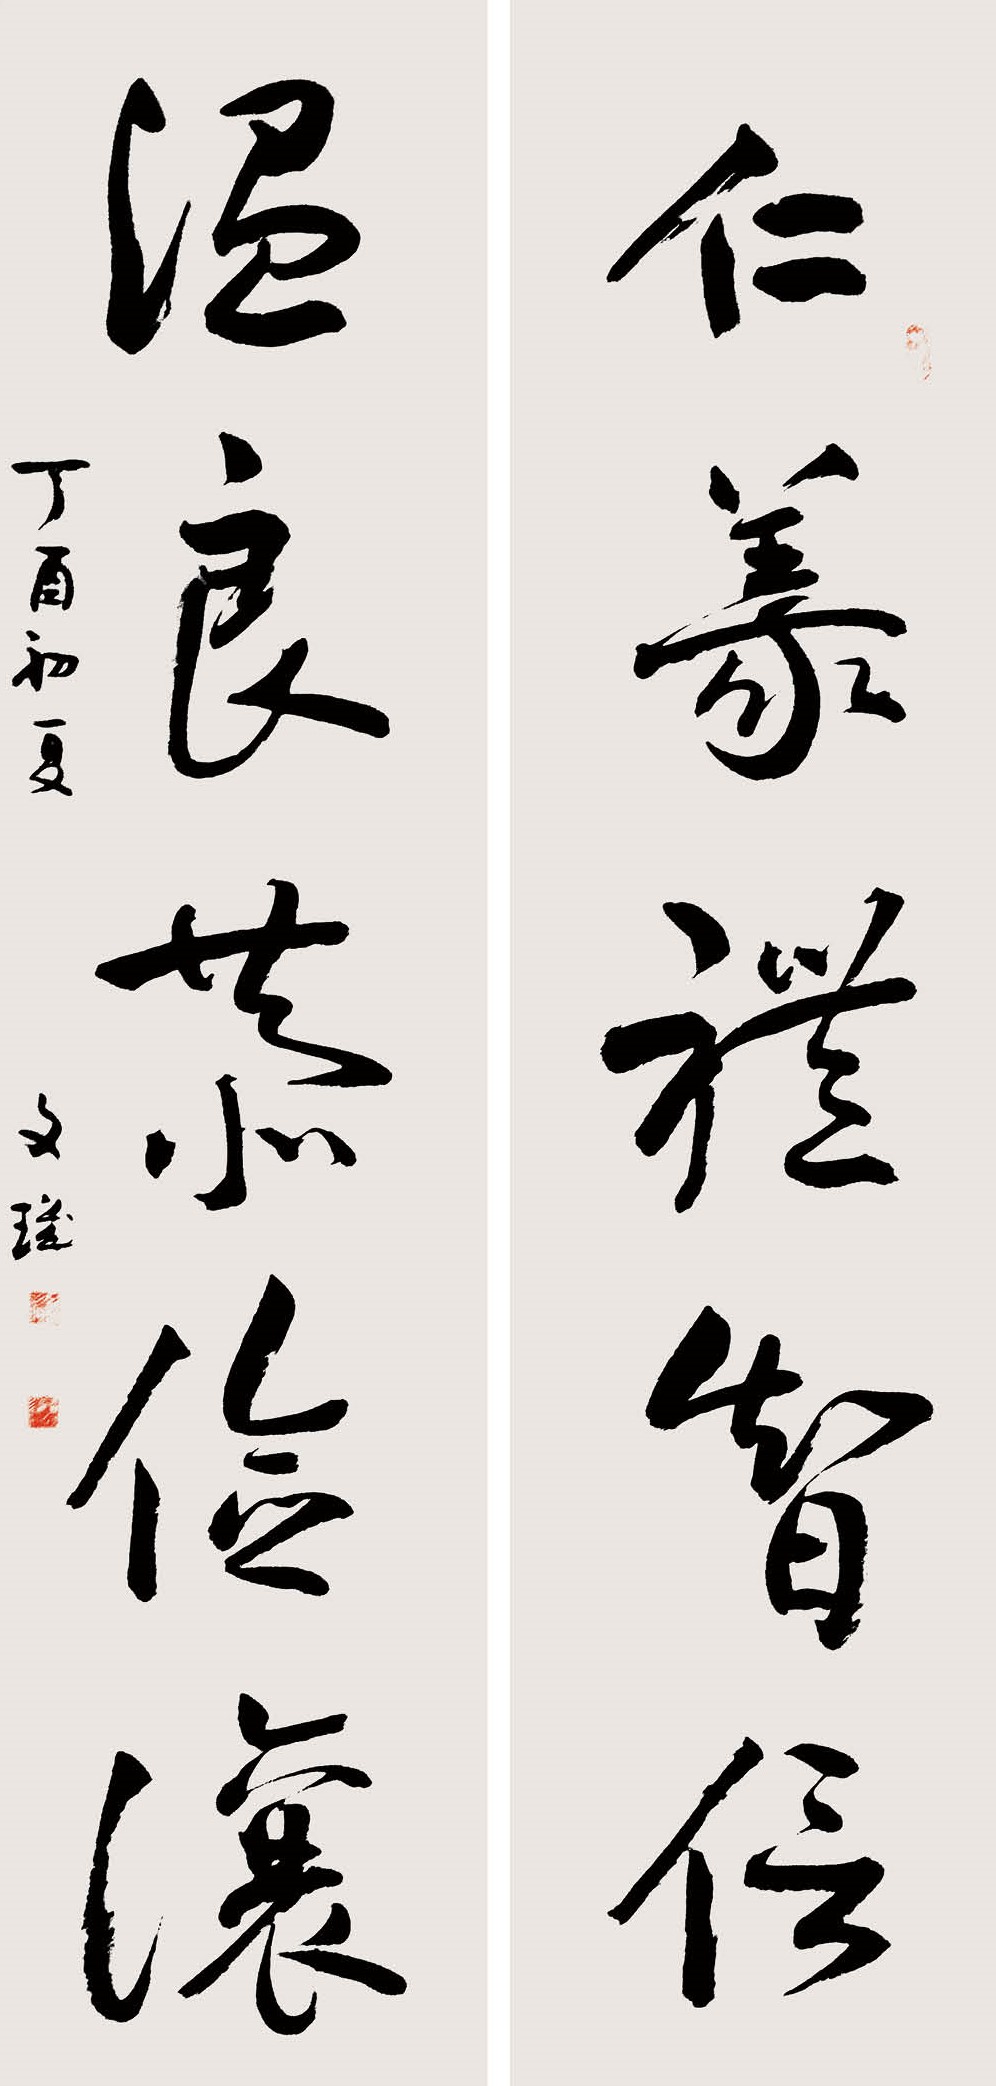 仁義禮智信
溫良恭儉讓
丁酉初夏
文瑾